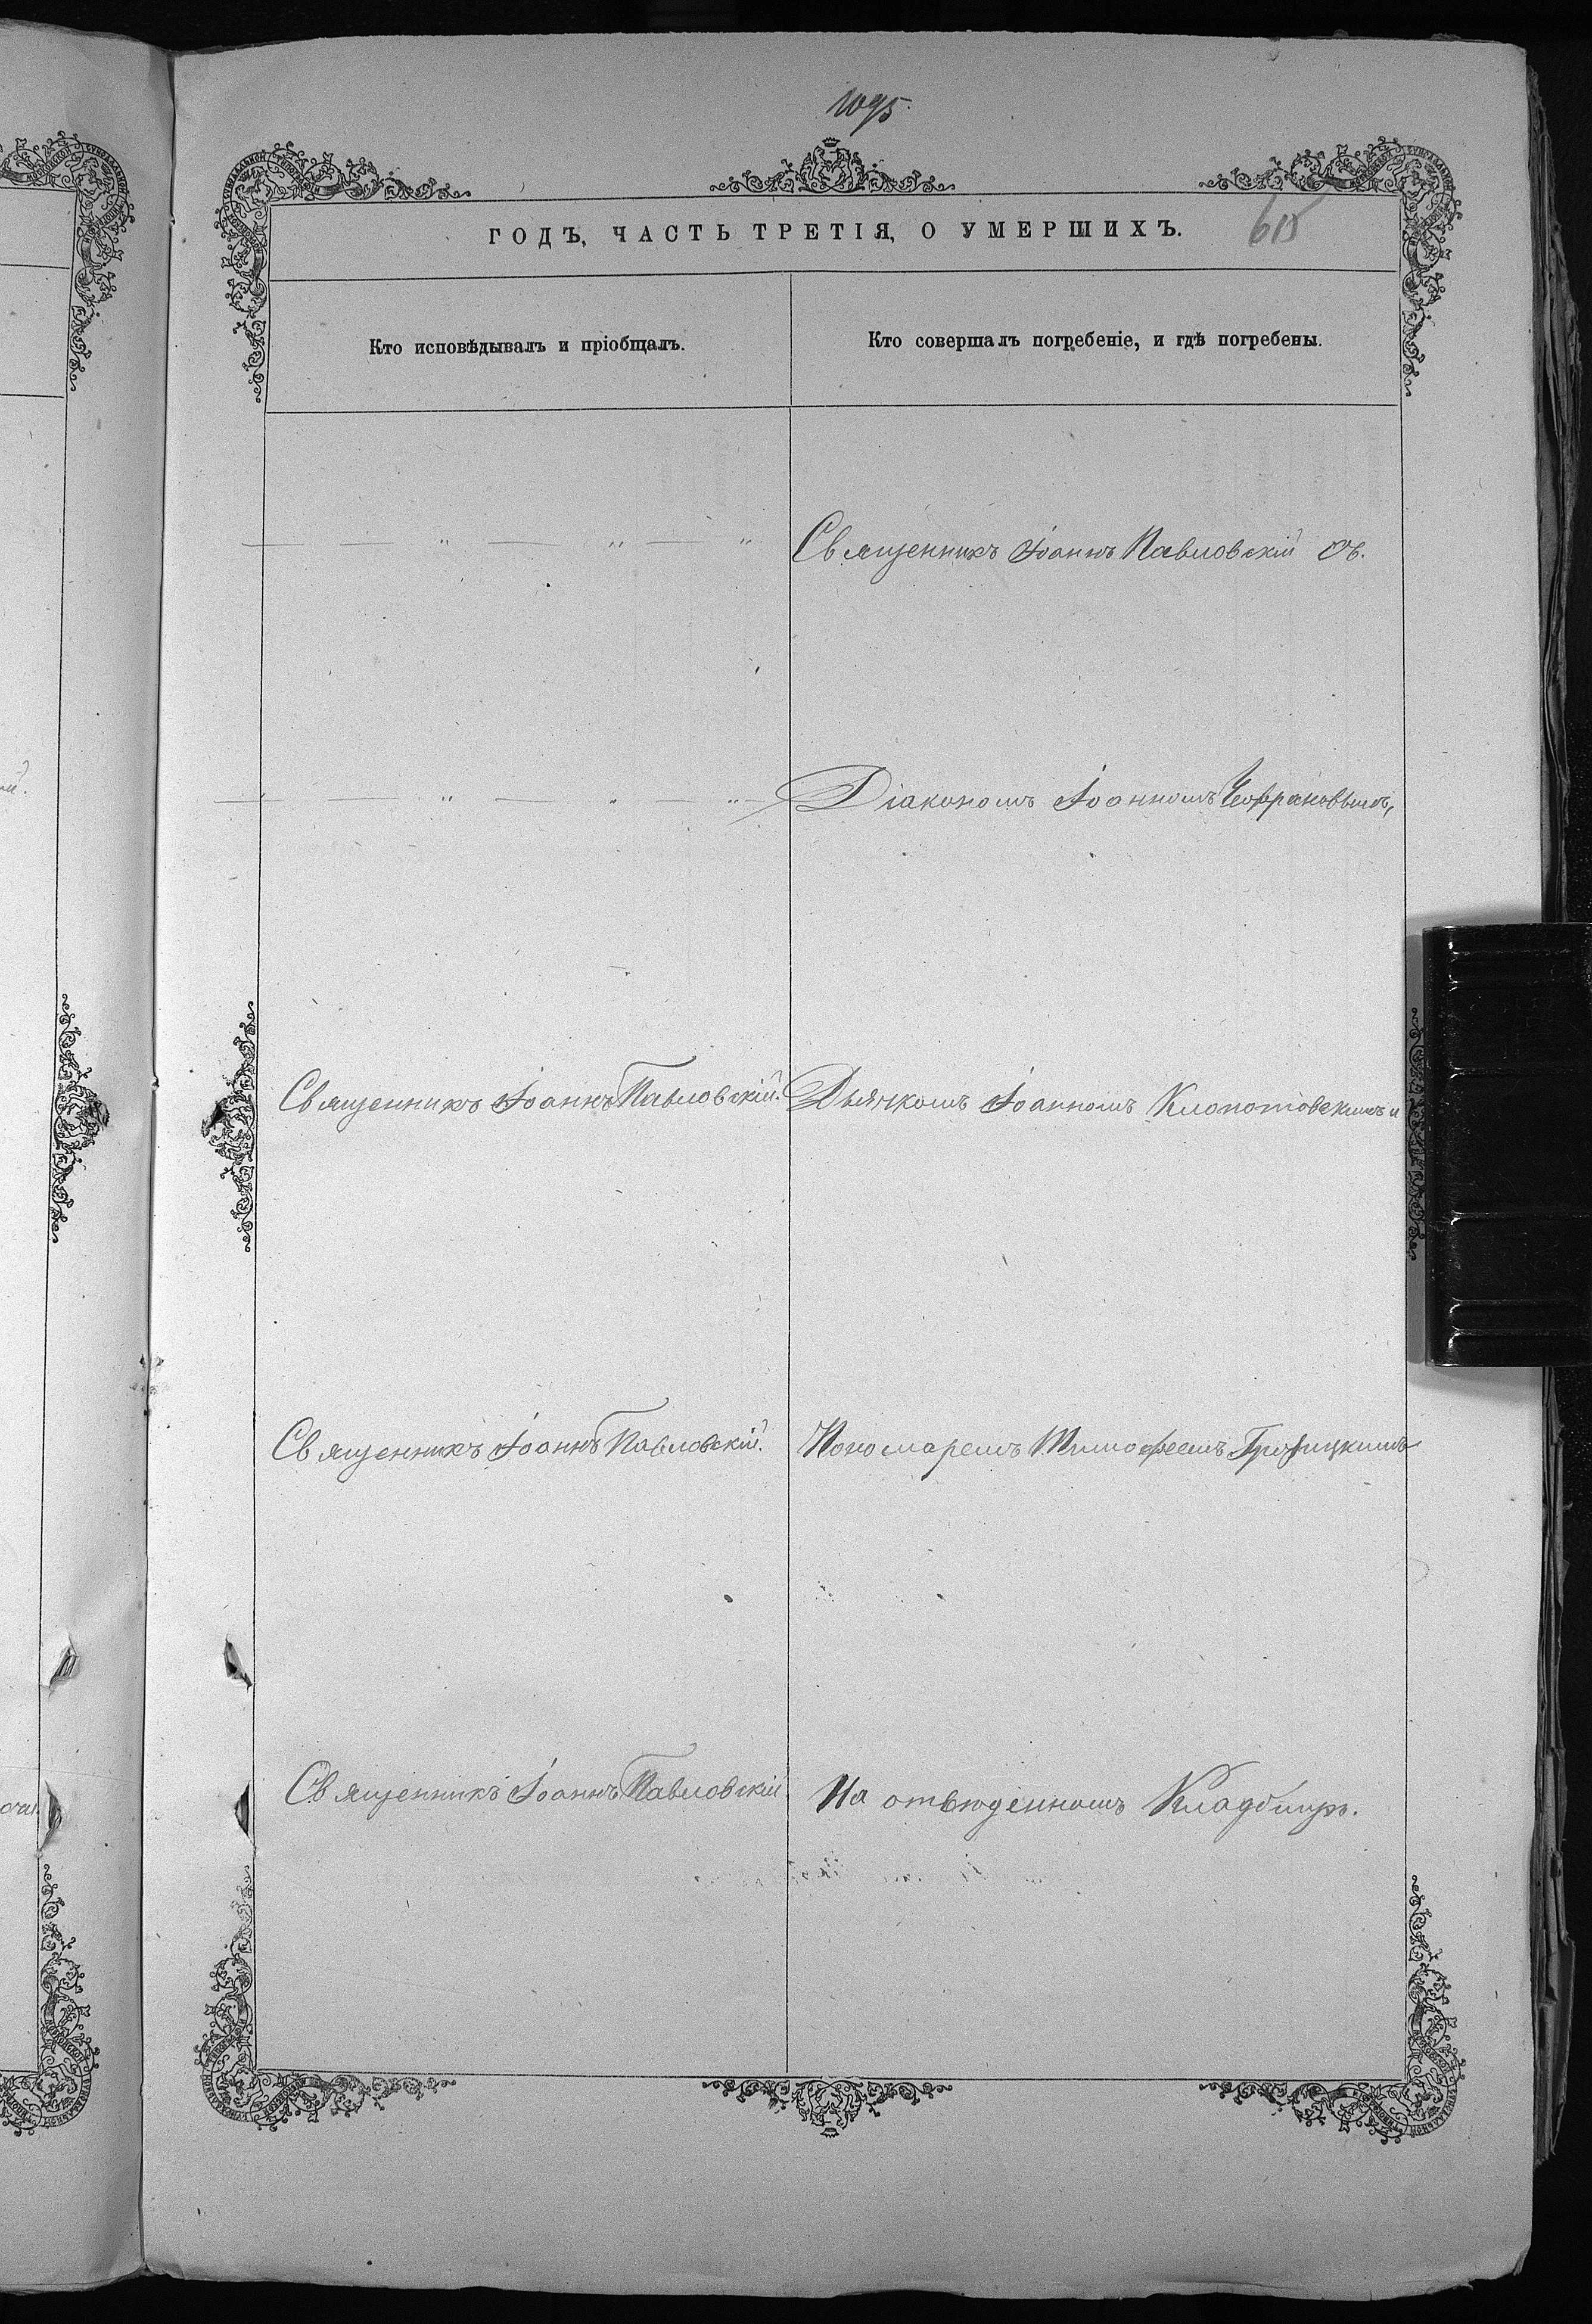 1095.
ГОДЪ, ЧАСТЬ ТРЕТІЯ, О УМЕРШИХЪ. 615
Кто исповѣдывалъ и пріобщалъ.
Кто совершалъ погребеніе, и гдѣ погребены.
— — " — " — "
Священникъ Іоаннъ Павловскій съ.
— — " — " — "
Діакономъ Іоанномъ
Священникъ Іоаннъ Павловскій.
Дьячкомъ Іоанномъ Клопотовскимъ и
Священникъ Іоаннъ Павловскій.
Пономаремъ Тимофеемъ
Священникъ Іоаннъ Павловскій.
На Кладбищѣ.